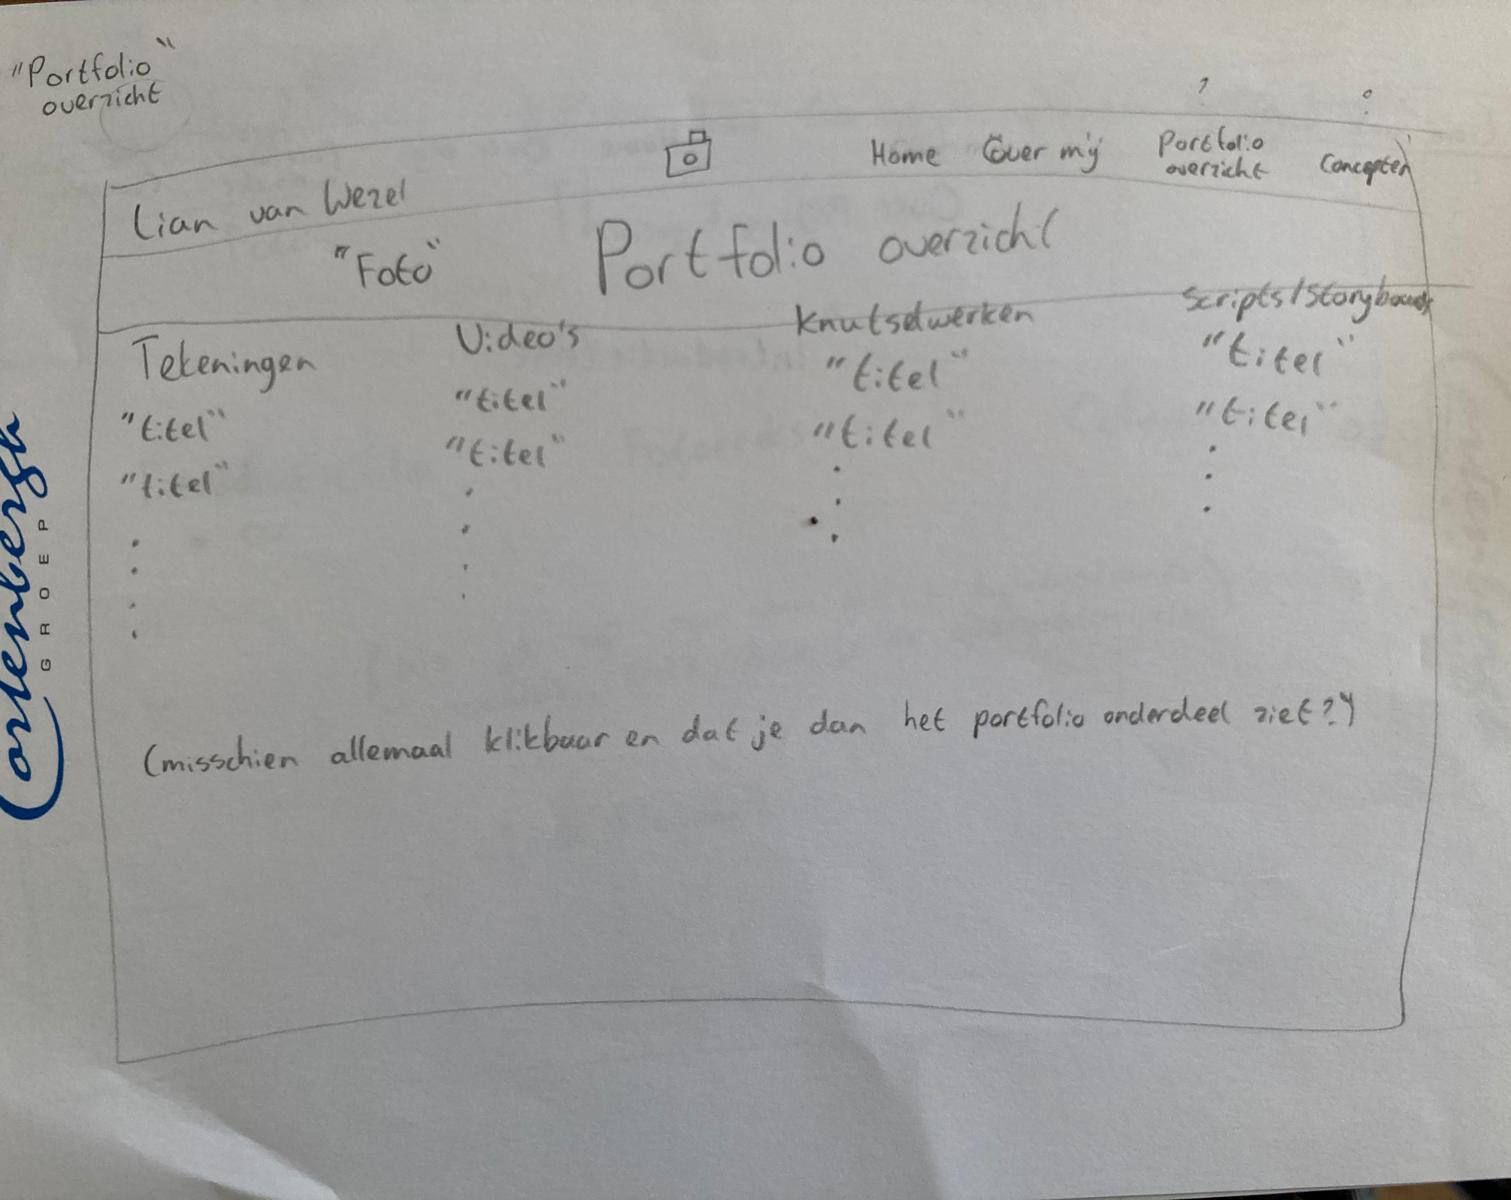 "Portfolio"
overzicht
?
Lian van Wezel
Home
Over mij
Portfolio
overzicht
Concepten
"Foto"
Portfolio overzicht
Tekeningen
"titel"
"titel"
Video's
"titel"
"titel"
Knutselwerken
"titel"
"titel"
Scripts/Storyboards
"titel"
"titel"
(misschien allemaal klikbaar en dat je dan het portfolio onderdeel ziet?)
GROEP